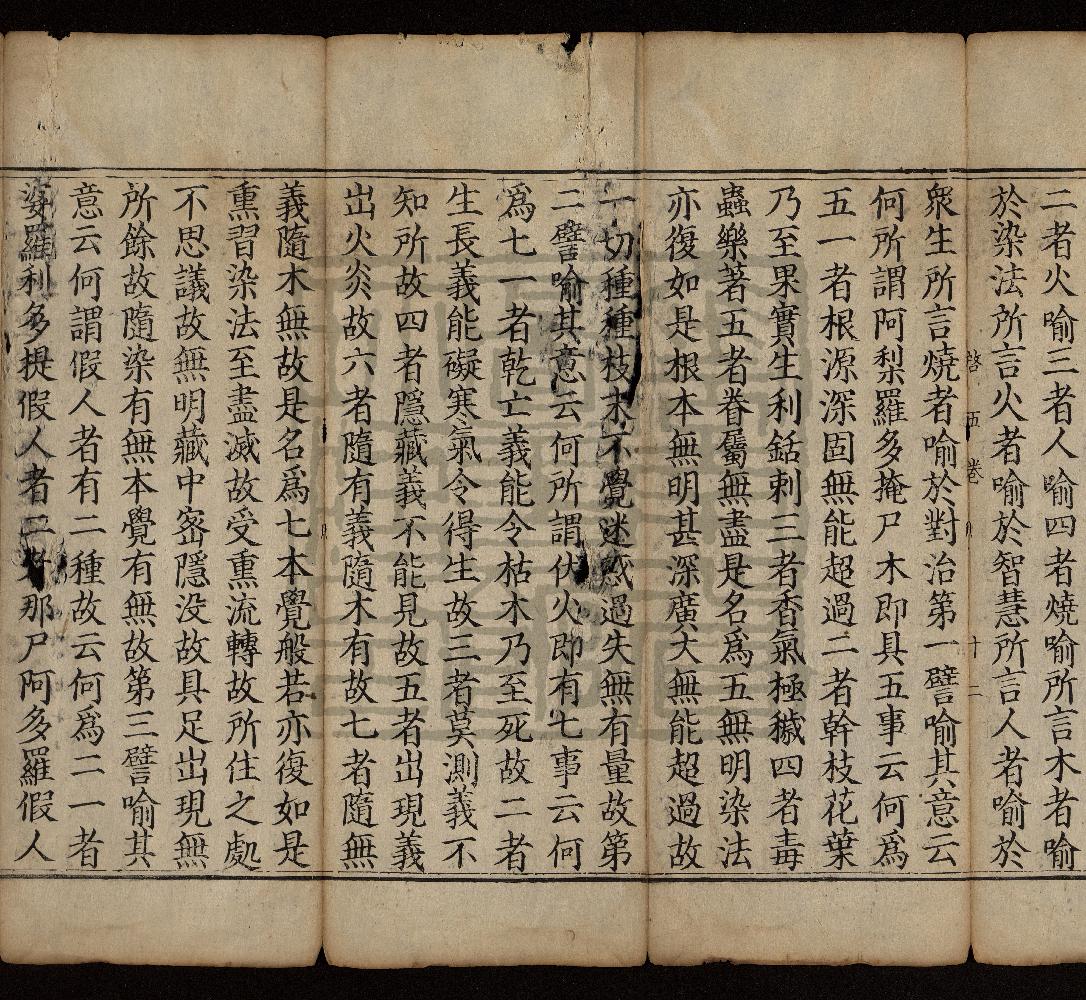 二者火喻三者人喻四者燒喻所言木者喻
於染法所言火者喻於智慧所言人者喻於
啓 五 卷 十 二
衆生所言燒者喻於對治第一譬喻其意云
何所謂阿梨羅多掩尸木即具五事云何爲
五一者根源深固無能超過二者幹枝花葉
乃至果實生利銛刺三者香氣極穢四者毒
蟲樂著五者眷屬無盡是名爲五無明染法
亦復如是根本無明甚深廣大無能超過故
一切種種枝末不覺迷惑過失無有量故第
二譬喻其意云何所謂伏火即有七事云何
爲七一者乾亡義能令枯木乃至死故二者
生長義能礙寒氣令得生故三者莫測義不
知所故四者隱藏義不能見故五者出現義
出火炎故六者隨有義隨木有故七者隨無
義隨木無故是名爲七本覺般若亦復如是
熏習染法至盡滅故受熏流轉故所住之處
不思議故無明藏中密隱没故具足出現無
所餘故隨染有無本覺有無故第三譬喻其
意云何謂假人者有二種故云何爲二一者
婆羅利多提假人者二 那尸阿多羅假人